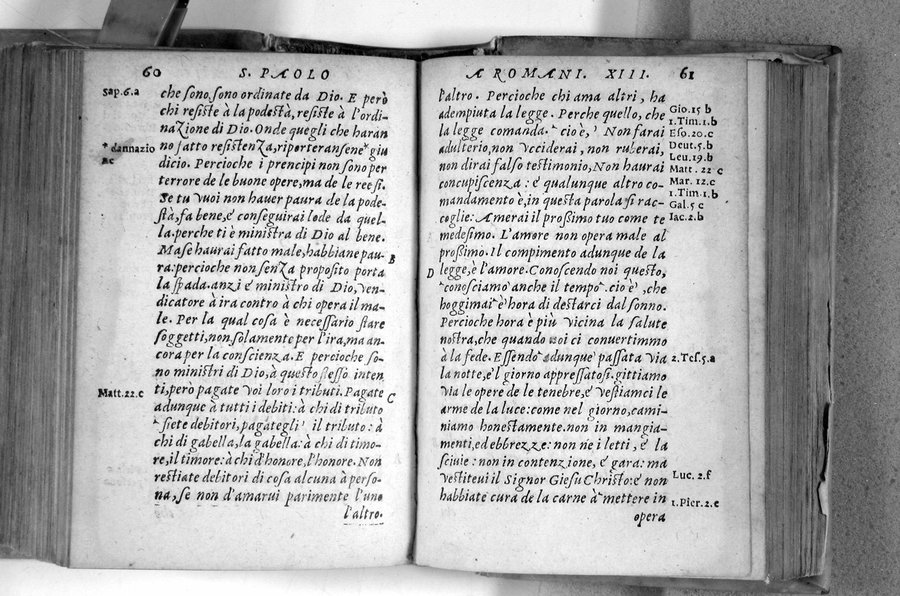 60 S. PAOLO
sap.6.a
che sono, sono ordinate da Dio. E però
chi resiste à la podestà, resiste à l'ordi-
nazione di Dio. Onde quegli che haran
* dannazio
ne
no fatto resistenza, riporteranſene * giu
dicio. Percioche i prencipi non ſono per
terrore de le buone opere, ma de le reeſi.
Se tu vuoi non hauer paura de la pode-
stà, fa bene, e conseguirai lode da quel-
la. perche ti è ministra di Dio al bene.
Ma se haurai fatto male, habbiane pau-
B
ra: percioche non senza proposito porta
la ſpada. anzi è ministro di Dio, ven-
dicatore à ira contro à chi opera il ma-
le. Per la qual cosa è neceſſario ſtare
soggetti, non solamente per l'ira, ma an-
cora per la conscienza. E percioche so-
no ministri di Dio, à questo ſteſſo inten
Matt.22.c
ti, però pagate voi loro i tributi. Pagate
C
adunque à tutti i debiti: à chi di tributo
siete debitori, pagategli il tributo: à
chi di gabella, la gabella: à chi di timo-
re, il timore: à chi d'honore, l'honore. Non
restiate debitori di cosa alcuna à perso-
na, se non d'amarui parimente l'uno
l'altro.
A ROMANI. XIII. 61
l'altro. Percioche chi ama altri, ha
adempiuta la legge. Perche quello, che
Gio.15 b
1.Tim.1.b
la legge comanda. cio è, Non farai
Eso.20.c
adulterio, non vcciderai, non ruberai,
Deut.5.b
Leu.19.b
non dirai falso testimonio, Non haurai
Matt.22 c
concupiscenza: é qualunque altro co-
Mar.12.c
1.Tim.1.b
mandamento è, in questa parola si rac-
Gal.5 c
coglie: Amerai il proßimo tuo come te
Iac.2.b
medesimo. L'amore non opera male al
proßimo. Il compimento adunque de la
D
legge, è l'amore. Conoscendo noi questo,
conosciamo anche il tempo. cio è, che
hoggimai è hora di destarci dal sonno.
Percioche hora è più vicina la salute
nostra, che quando noi ci conuertimmo
à la fede. Essendo adunque passata via
2.Tes.5.a
la notte, e'l giorno appressatosi. gittiamo
via le opere de le tenebre, é vestiamci le
arme de la luce: come nel giorno, cami-
niamo honestamente. non in mangia-
menti, ed ebbrezze: non ne i letti, é la
sciuie: non in contenzione, é gara: ma
vestiteui il Signor Giesu Christo: é non
Luc.2.f
habbiate cura de la carne à mettere in
1.Pier.2.c
opera